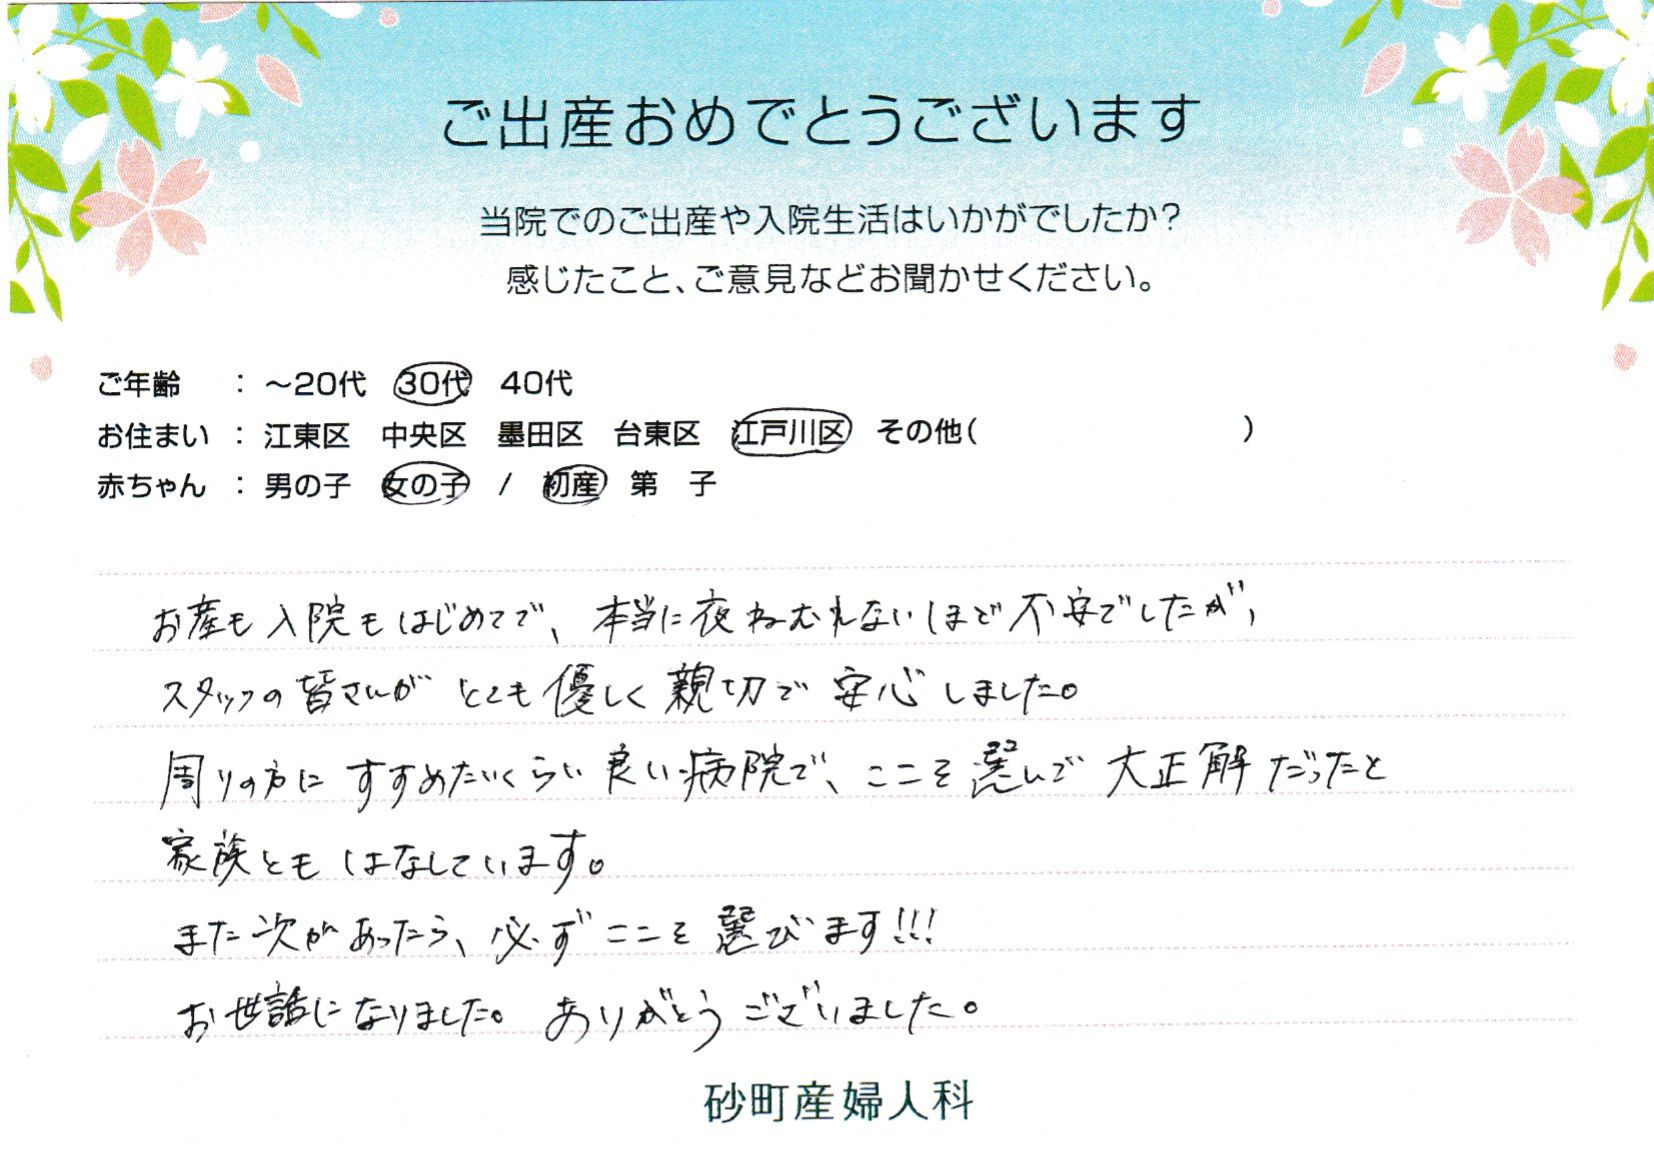 ご出産おめでとうございます
当院でのご出産や入院生活はいかがでしたか?
感じたこと、ご意見などお聞かせください。
ご年齢 : ～20代 30代 40代
お住まい : 江東区 中央区 墨田区 台東区 江戸川区 その他( )
赤ちゃん : 男の子 女の子 / 初産 第 子
お産も入院もはじめてで、本当に夜ねむれないほど不安でしたが、
スタッフの皆さんがとても優しく親切で安心しました。
周りの方にすすめたいくらい良い病院で、ここを選んで大正解だったと
家族ともはなしています。
また次があったら、必ずここを選びます!!!
お世話になりました。ありがとうございました。
砂町産婦人科